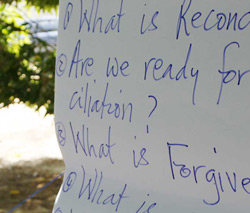 ① What is Recon
② Are we ready for
ciliation?
③ What is Forgive
④ What is